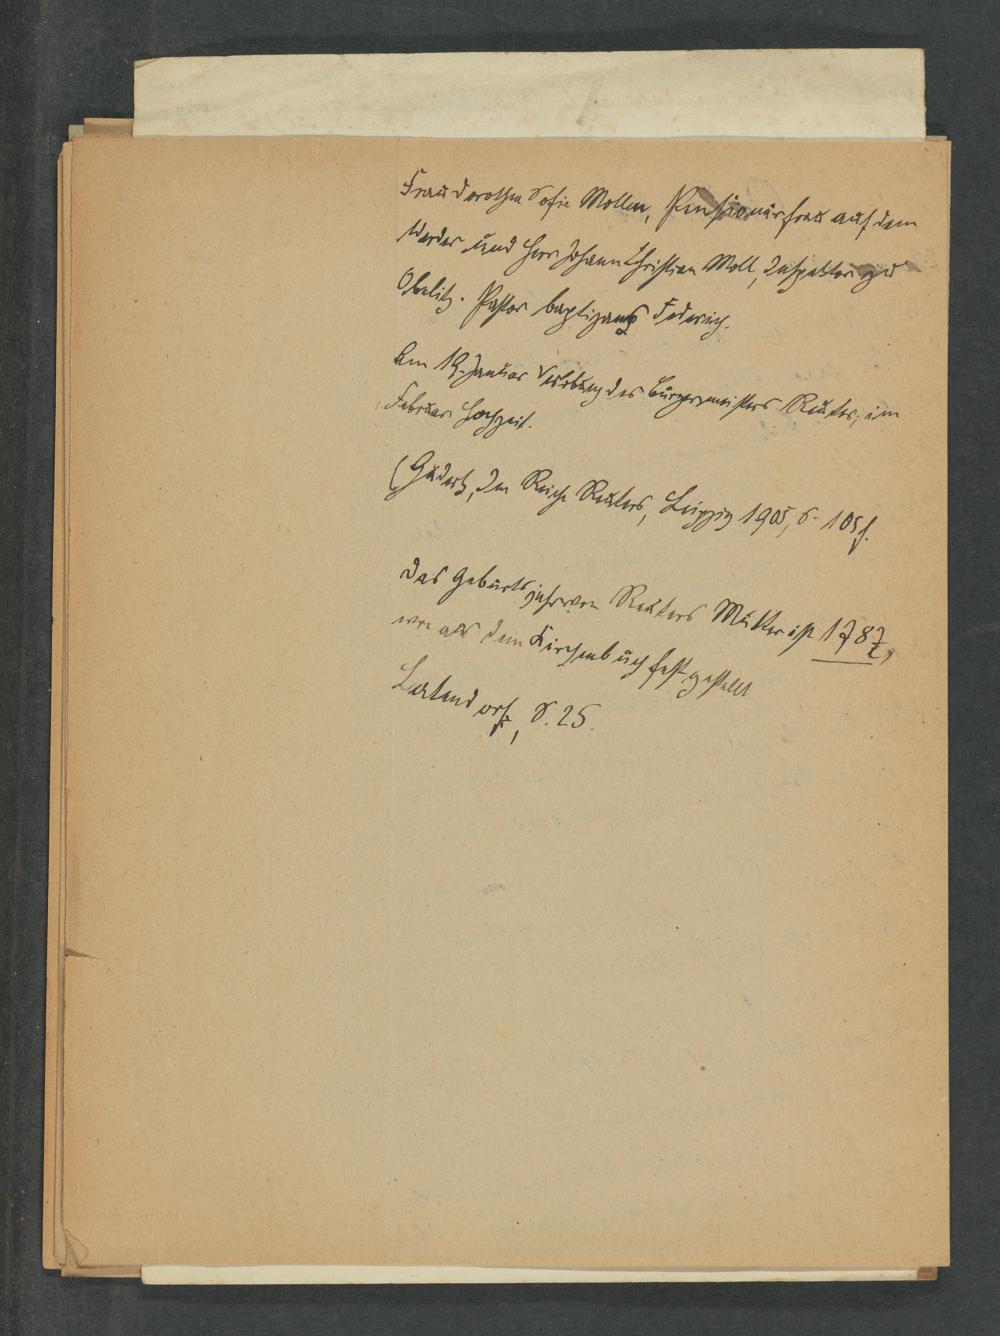 Frau Dorothea Sofie Mollen, Pensionärfrau auf dem
Werder und Herr Johann Christian Moll, Inspektor zu
Obelitz. Pastor baptizans Federich.
Am 19. Januar Verlobung des Bürgermeisters Reuter, im
Februar Hochzeit.
(Gädertz, Im Reiche Reuters, Leipzig 1905, S. 105f.
Das Geburtsjahr von Reuters Mutter ist 1787,
wie aus dem Kirchenbuch festgestellt
Latendorf, S. 25.